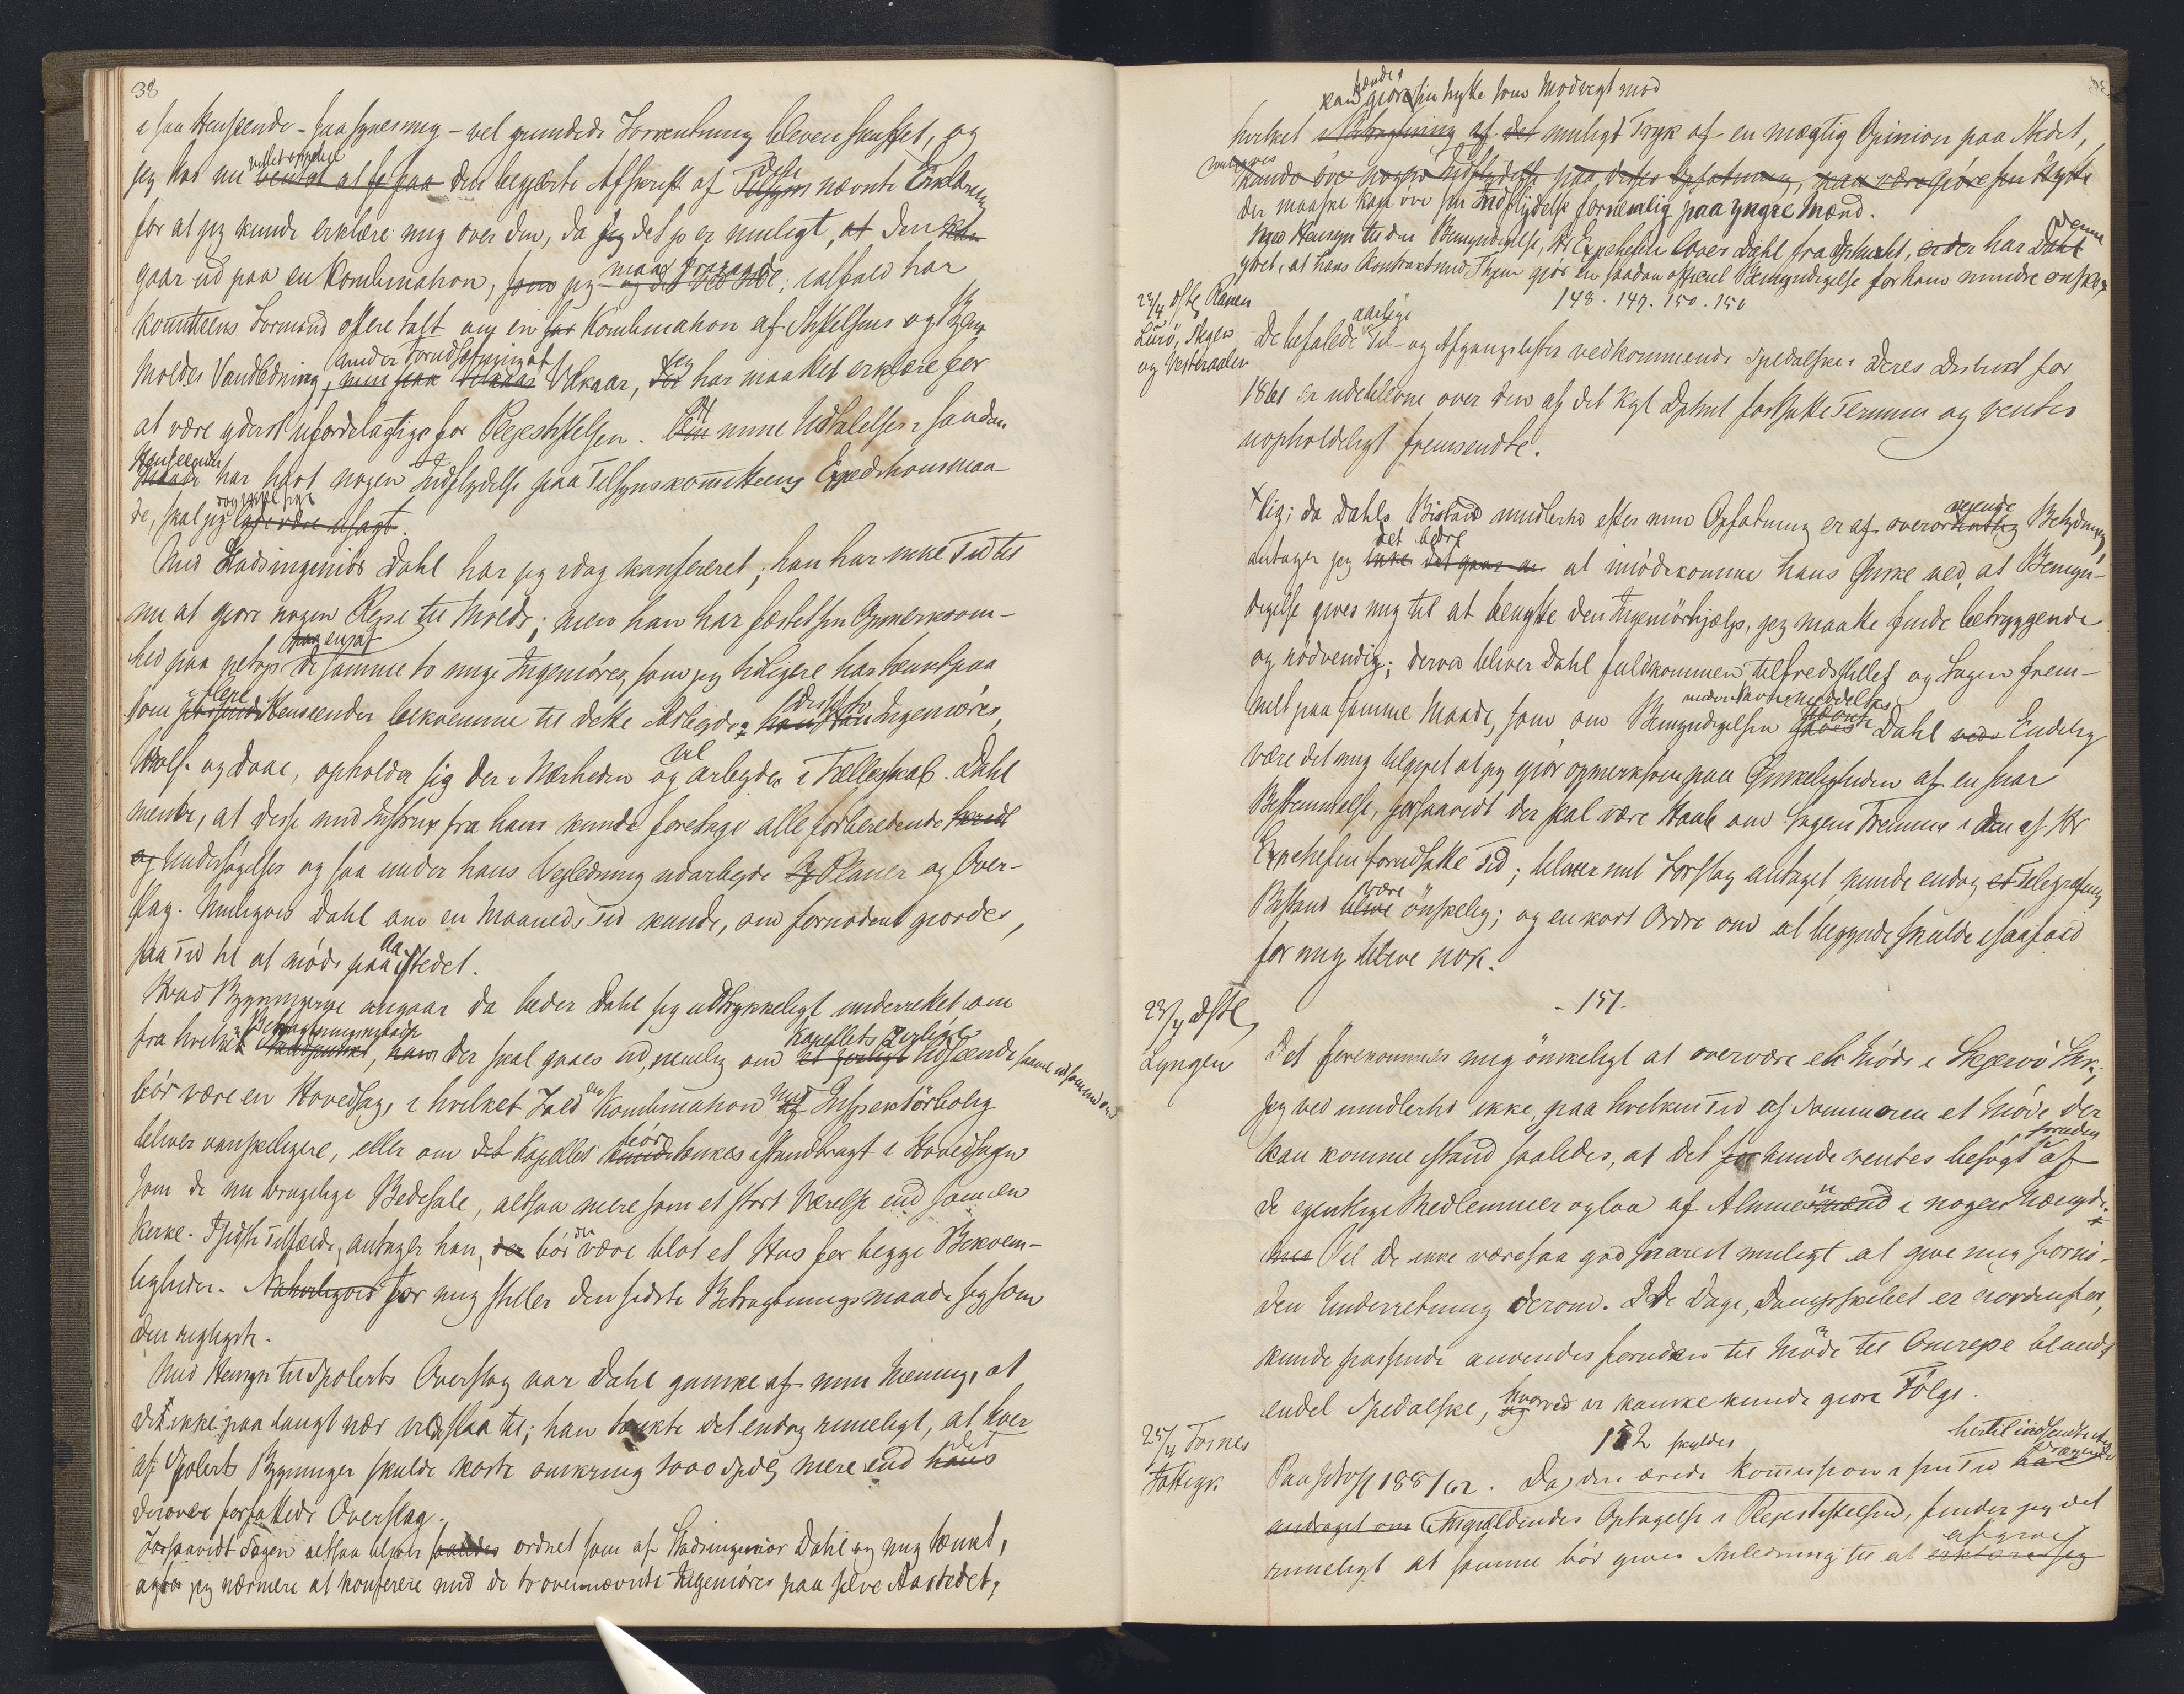 38
i saa Henseende - saa synes mig - vel grundede Forventning bleven skuffet, og
jeg har nu villet ventet at se paa den begjærte Afskrift af Tilsyns nævnte Erklæring
for at jeg kunde erklære mig over den, da jeg det jo er muligt, at den kan
gaar ud paa en Kombination, som jeg maa fraraade; ialfald har
komiteens Formand oftere talt om en Kombination af Stiftelsens og Byen
Moldes Vandledning, under Forudsætning af Vilkaar, jeg har maattet erklære for
at være yderst ufordelagtige for Plejestiftelsen. At mine Udtalelser i saadan
Henseende har havt nogen Indflydelse paa Tilsynskomiteens Expeditionsmaa-
de, skal jeg lade være usagt.
Med Stadsingeniør Dahl har jeg idag konfereret; han har ikke Tid til
nu at gjøre nogen Rejse til Molde; men han har fæstet sin Opmerksom-
hed paa netop de samme to unge Ingeniører, som jeg tidligere har tænkt paa
som i flere Henseender bekvemme til dette Arbejde; disse to Ingeniører,
og Daae, opholder sig der i Nærheden og vil arbejde i Fællesskab. Dahl
mente, at disse med Instrux fra ham kunde foretage alle forberedende
og Undersøgelser og saa under hans Vejledning udarbejde Planer og Over-
slag. Muligvis Dahl om en Maaneds Tid kunde, om fornødent gjordes,
faa Tid til at møde paa Aastedet.
Hvad Bygningerne angaar da beder Dahl sig udtrykkeligt underrettet om
fra hvilken Betragtningsmaade, der skal gaaes ud, nemlig om Kapellets Udseende
bør være en Hovedsag, i hvilket Fald en Kombination med Inspektørbolig
bliver vanskeligere, eller om Kapellet bør tænkes istandbragt i Hovedsagen
som de nu brugelige Bedesale, altsaa mere som et stort Værelse end som en
Kirke. I sidste Tilfælde, antager han, der bør være blot et Hus for begge Bekvem-
ligheder. Naturligvis for mig stiller den sidste Betragtningsmaade sig som
den rigtigste.
Med Hensyn til Spolerts Overslag var Dahl ganske af min Mening, at
det ikke paa langt nær vil slaa til; han tænkte det endog rimeligt, at hver
af Spolerts Bygninger skulde koste omkring 1000 Spdlr mere end det
derover forfattede Overslag.
Forsaavidt Sagen altsaa bliver saaledes ordnet som af Stadsingeniør Dahl og mig tænkt,
agter jeg nærmere at konferere med de to ovennævnte Ingeniører paa selve Aastedet,
kan gjøre sin Nytte som Modvægt mod
hvilket i Betragtning af det muligt Tryk af en mægtig Opinion paa Stedet,
kunde øve nogen Indflydelse paa deres Opfatning, kan være gjøre sin Nytte
der maaske kan øve sin Indflydelse fornemlig paa yngre Mænd.
Med Hensyn til den Bemyndigelse, Hr Expchefen lover Dahl fra Dptmtet, har denne
ytret, at hans Kontrakt med Byen gjør en saadan officiel Bemyndigelse for ham mindre ønske-x
148. 149. 150. 150
23/4 Dstl. Ranen
Lurø, Skgen
og Vesteraalen
De befalede aarlige Til- og Afgangslister vedkommende Spedalske i Deres Distrikt for
1861 er udeblevne over den af det Kgl Dptmt fastsatte Termin og ventes
uopholdeligt fremsendte.
x lig; da Dahls Bistand imidlertid efter min Opfatning er af overvejende Betydning
antager jeg det bedre at imødekomme hans Ønske ved, at Bemyn-
digelse gives mig til at benytte den Ingeniørhjælp, jeg maatte finde betryggende
og nødvendig; derved bliver Dahl fuldkommen tilfredsstillet og Sagen frem-
met paa samme Maade, som om Bemyndigelsen Dahl. Endelig
være det mig tilgivet at jeg gjør opmerksom paa Ønskeligheden af en snar
Bestemmelse, forsaavidt der skal være Haab om Sagens Fremme i den af Hr
Expchefen forudsatte Tid; bliver mit Forslag antaget, kunde endog Telegrafens
Bistand være ønskelig; og en kort Ordre om at begynde skulde isaafald
for mig blive nok.
- 151.
23/4 Dstl.
Lyngen
Det forekommer mig ønskeligt at overvære et Møde i Skjervø Shk.;
jeg ved imidlertid ikke, paa hvilken Tid af Sommeren et Møde der
kan komme istand saaledes, at det kunde ventes besøgt foruden af
de egentlige Medlemmer ogsaa af Almuen i nogen Mængde.
Vil De ikke være saa god snarest muligt at give mig fornø-
den Underretning derom. De Dage, Dampskibet er nordenfor,
kunde passende anvendes foruden til Møde til Omrejse blandt
endel Spedalske, hvorved vi kanske kunde gjøre Følge.
25/4 Fosnes
Fattigk.
152
Paaskrift 188/62. Da den ærede Kommission i sin Tid hertil indsendte
andraget om Angjældendes Optagelse i Plejestiftelsen, finder jeg det
rimeligt at samme bør gives Anledning til at afgive